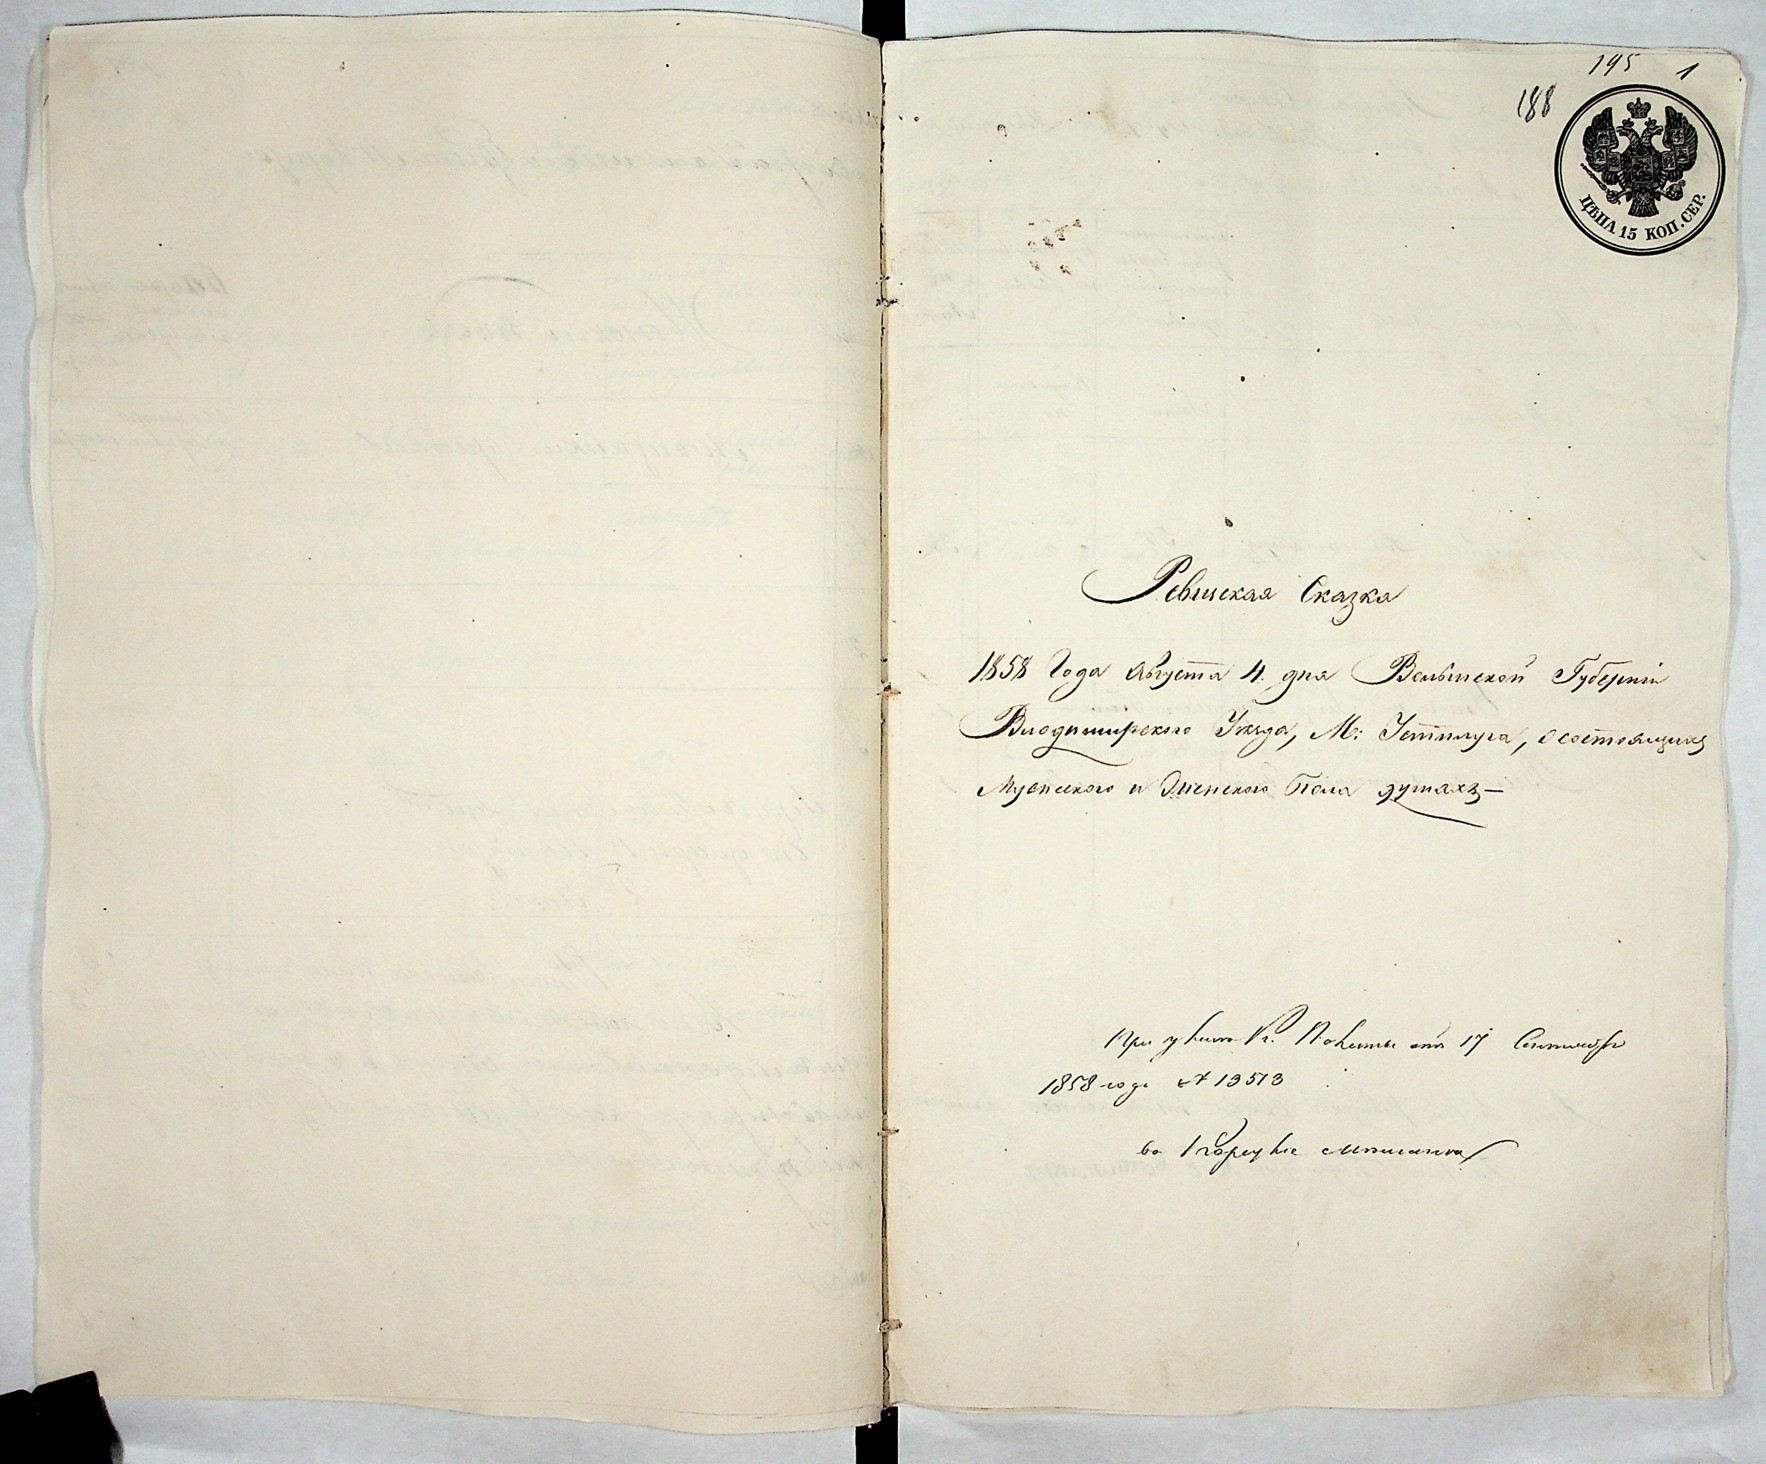 195 1
188
ЦѢНА 15 КОП. СЕР.
Ревиская Сказка
1858 Года Августа 4. дня Волынской Губернiи
Владимирского Уѣзда, М: Устилуга, о состоящихъ
Мужеского и Женского Пола душахъ—
При указѣ Кз. Палаты отъ 17 Сентября
1858 года № 13573
во 2 Евреи